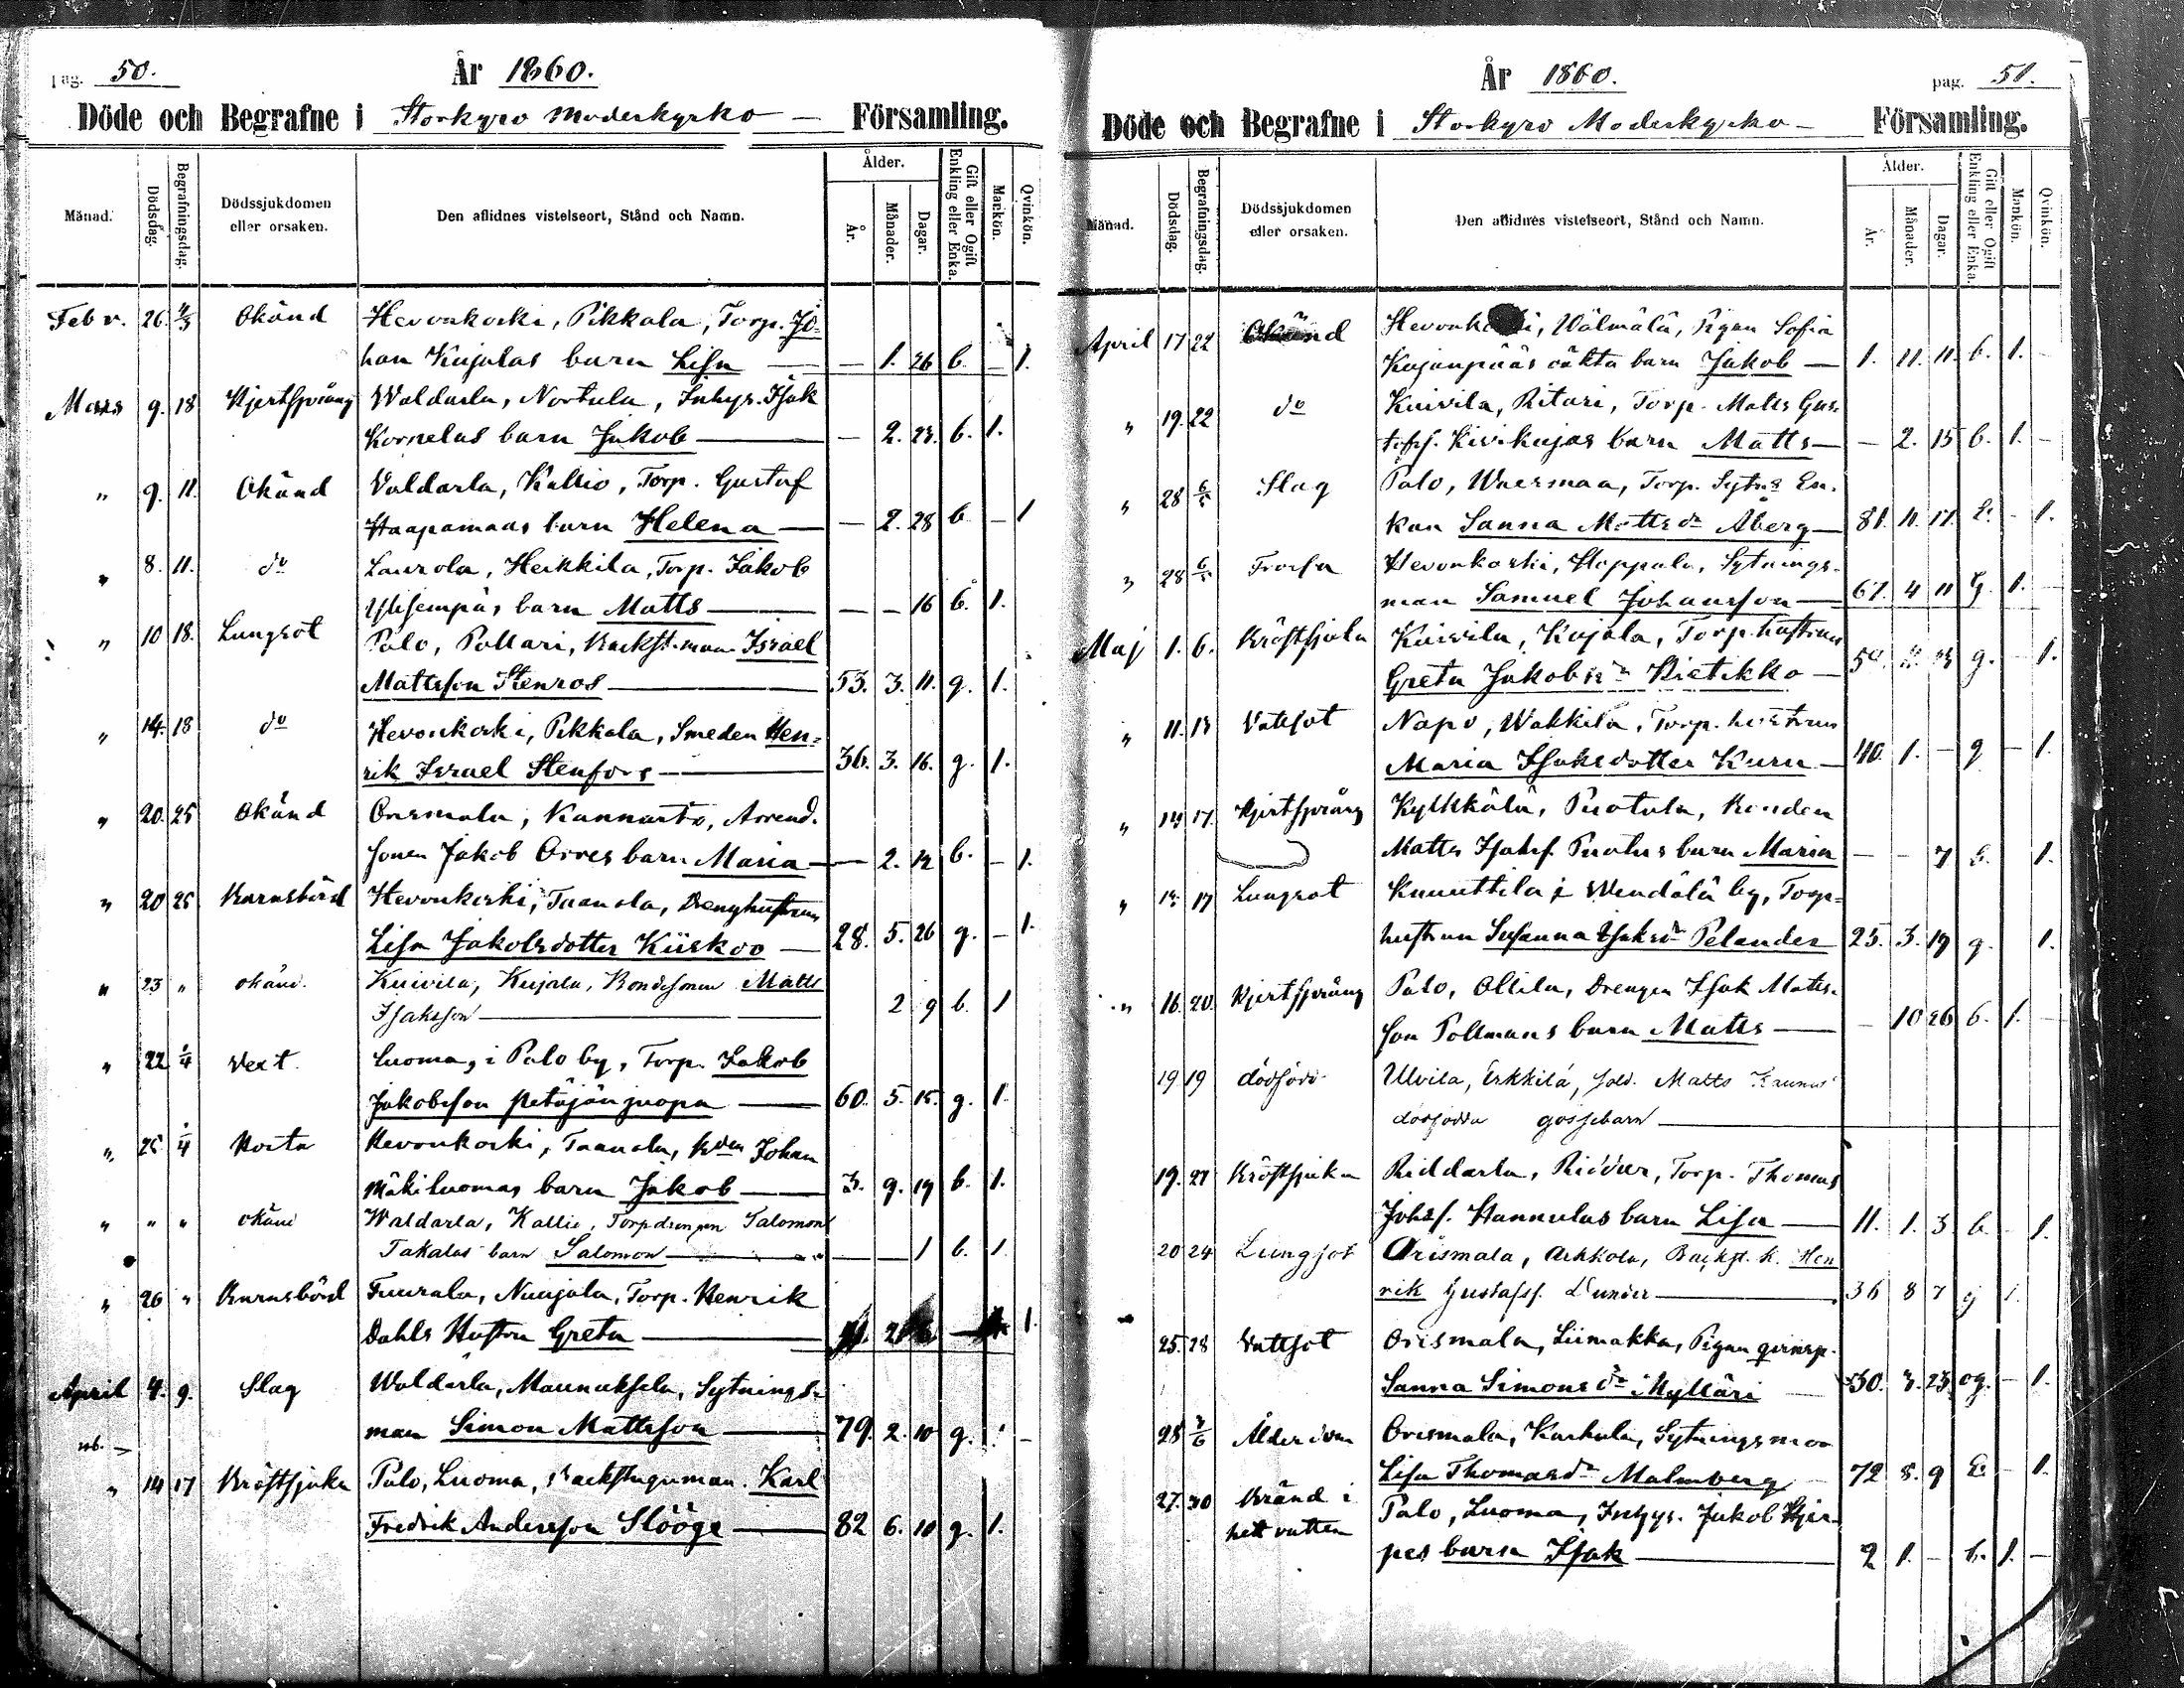 pag. 50.
År 1860.
Döde och Begrafne i Storkyro Moderkyrko — Församling.
Månad. Dödsdag. Begrafningsdag. Dödssjukdomen eller orsaken. Den aflidnes vistelseort, Stånd och Namn. Ålder. År. Månader. Dagar. Gift eller Ogift Enkling eller Enka. Mankön. Qvinkön.
Febr. 26. 4/3 Okänd Hevonkoski, Pikkala, Torp. Jo-
han Kujalas barn Lisa — 1. 26 b. — 1.
Mars 9. 18 Hjertsprång Waldarla, Nortula, Inhys. Isak
Kornelas barn Jakob — 2. 23. b. 1.
" 9. 11. Okänd Valdarla, Kallio, Torp. Gustaf
Haapamaas barn Helena — 2. 28 b — 1
" 8. 11. do Laurola, Heikkila, Torp. Jakob
barn Matts — — 16 b. 1.
" 10 18. Lungsot Palo, Pollari, Backst.man Israel
Mattsson Stenros 53. 3. 11. g. 1.
" 14. 18 do Hevonkoski, Pikkala, Smeden Hen-
rik Israel Stenfors 36. 3. 16. g. 1.
" 20. 25 Okänd Orismala, Kannasto, Arrend.
sonen Jakob Orres barn Maria — 2. 12 b. — 1.
" 20 25 Barnsbörd Hevonkoski, Taanola, Drenghustrun
Lisa Jakobsdotter Kiiskoo 28. 5. 26 g. — 1.
" 23 " okänd. Kuivila, Kujala, Bondesonen Matts
Isaksson 2 9 b. 1
" 22 1/4 Vext. Luoma, i Palo by, Torp. Jakob
Jakobsson Petäjänjuopa 60. 5. 15. g. 1.
" 25 1/4 Hosta Hevonkoski, Taanola, Bden Johan
Mäkiluomas barn Jakob 3. 9. 19 b. 1.
" " " okänd Waldarla, Kallio, Torpdrengen Salomon
Takalas barn Salomon — — 1 b. 1.
" 26 " Barnsbörd Tuurala, Nuujala, Torp. Henrik
Dahls Hustru Greta 1.
April 4. 9. Slag Waldarla, Maunuksela, Sytnings-
man Simon Mattsson 79. 2. 10 g. 1. —
nb. —
" 14 17 Kräftsjuka Palo, Luoma, Backstuguman. Karl
Fredrik Andersson Slööge 82 6. 10 g. 1.
År 1860.
pag. 51.
Döde och Begrafne i Storkyro Moderkyrko — Församling.
Månad. Dödsdag. Begrafningsdag. Dödssjukdomen eller orsaken. Den aflidnes vistelseort, Stånd och Namn. Ålder. År. Månader. Dagar. Gift eller Ogift Enkling eller Enka. Mankön. Qvinkön.
April 17 22 Okänd Wälmälä, Pigan Sofia
Kujanpääs oäkta barn Jakob — 1. 11. 11. b. 1.
" 19. 22 do Kuivila, Ritari, Torp. Matts Gus-
tafss. Kivikujas barn Matts — 2. 15 b. 1. —
" 28 6/5 Slag Palo, Wuermaa, Torp. Sytns En-
kan Sanna Mattsdr Åberg 81. 11. 17. E. — 1.
" 28 6/5 Frossa Hevonkoski, Hoppala, Sytnings-
man Samuel Johansson 67. 4 11 g. 1. —
Maj 1. 6. Kräftsjuka Kuivila, Kujala, Torp.hustrun
Greta Jakobsdr Kietikko g. — 1.
" 11. 13 Vattsot Napo, Wakkila, Torp. hustrun
Maria Isaksdotter Kuru 40. 1. — g — 1.
" 14 17. Hjertsprång Kylkkälä, Puotula, Bonden
Matts Isakss. Puotus barn Maria — — 7 b. 1.
" 17 Lungsot Knuuttila i Wendälä by, Torp-
hustrun Susanna Isaksdr Pelander 25. 3. 19 g. 1.
" 16. 20. Hjertsprång Palo, Ollila, Drengen Isak Matts-
son Pollmans barn Matts — 10 26 b. 1. —
19 19 dödfödd Ulvila, Erkkilä, sold. Matts
dödfödda gossebarn
19. 27 Kräftsjuka Riddarla, Torp. Thomas
Johss. Hannulas barn Lisa 11. 1. 3 b. — 1.
20 24 Lungsot Orismala, Arkkola, Backst. k. Hen
rik Gustafss. Dunder 36 8 7 g 1.
25. 28 Vattsot Orismala, Liimakka, Pigan
Sanna Simonsdr Mylläri 50. 3. 23 og. — 1.
28 3/6 Ålderdom Orismala, Karhula, Sytningsmor
Lisa Thomasdr Malmberg 72 8. 9 E. — 1.
27. 30 Bränd i
het vatten Palo, Luoma, Inhys. Jakob Hjer-
pes barn Isak 2 1. — b. 1. —